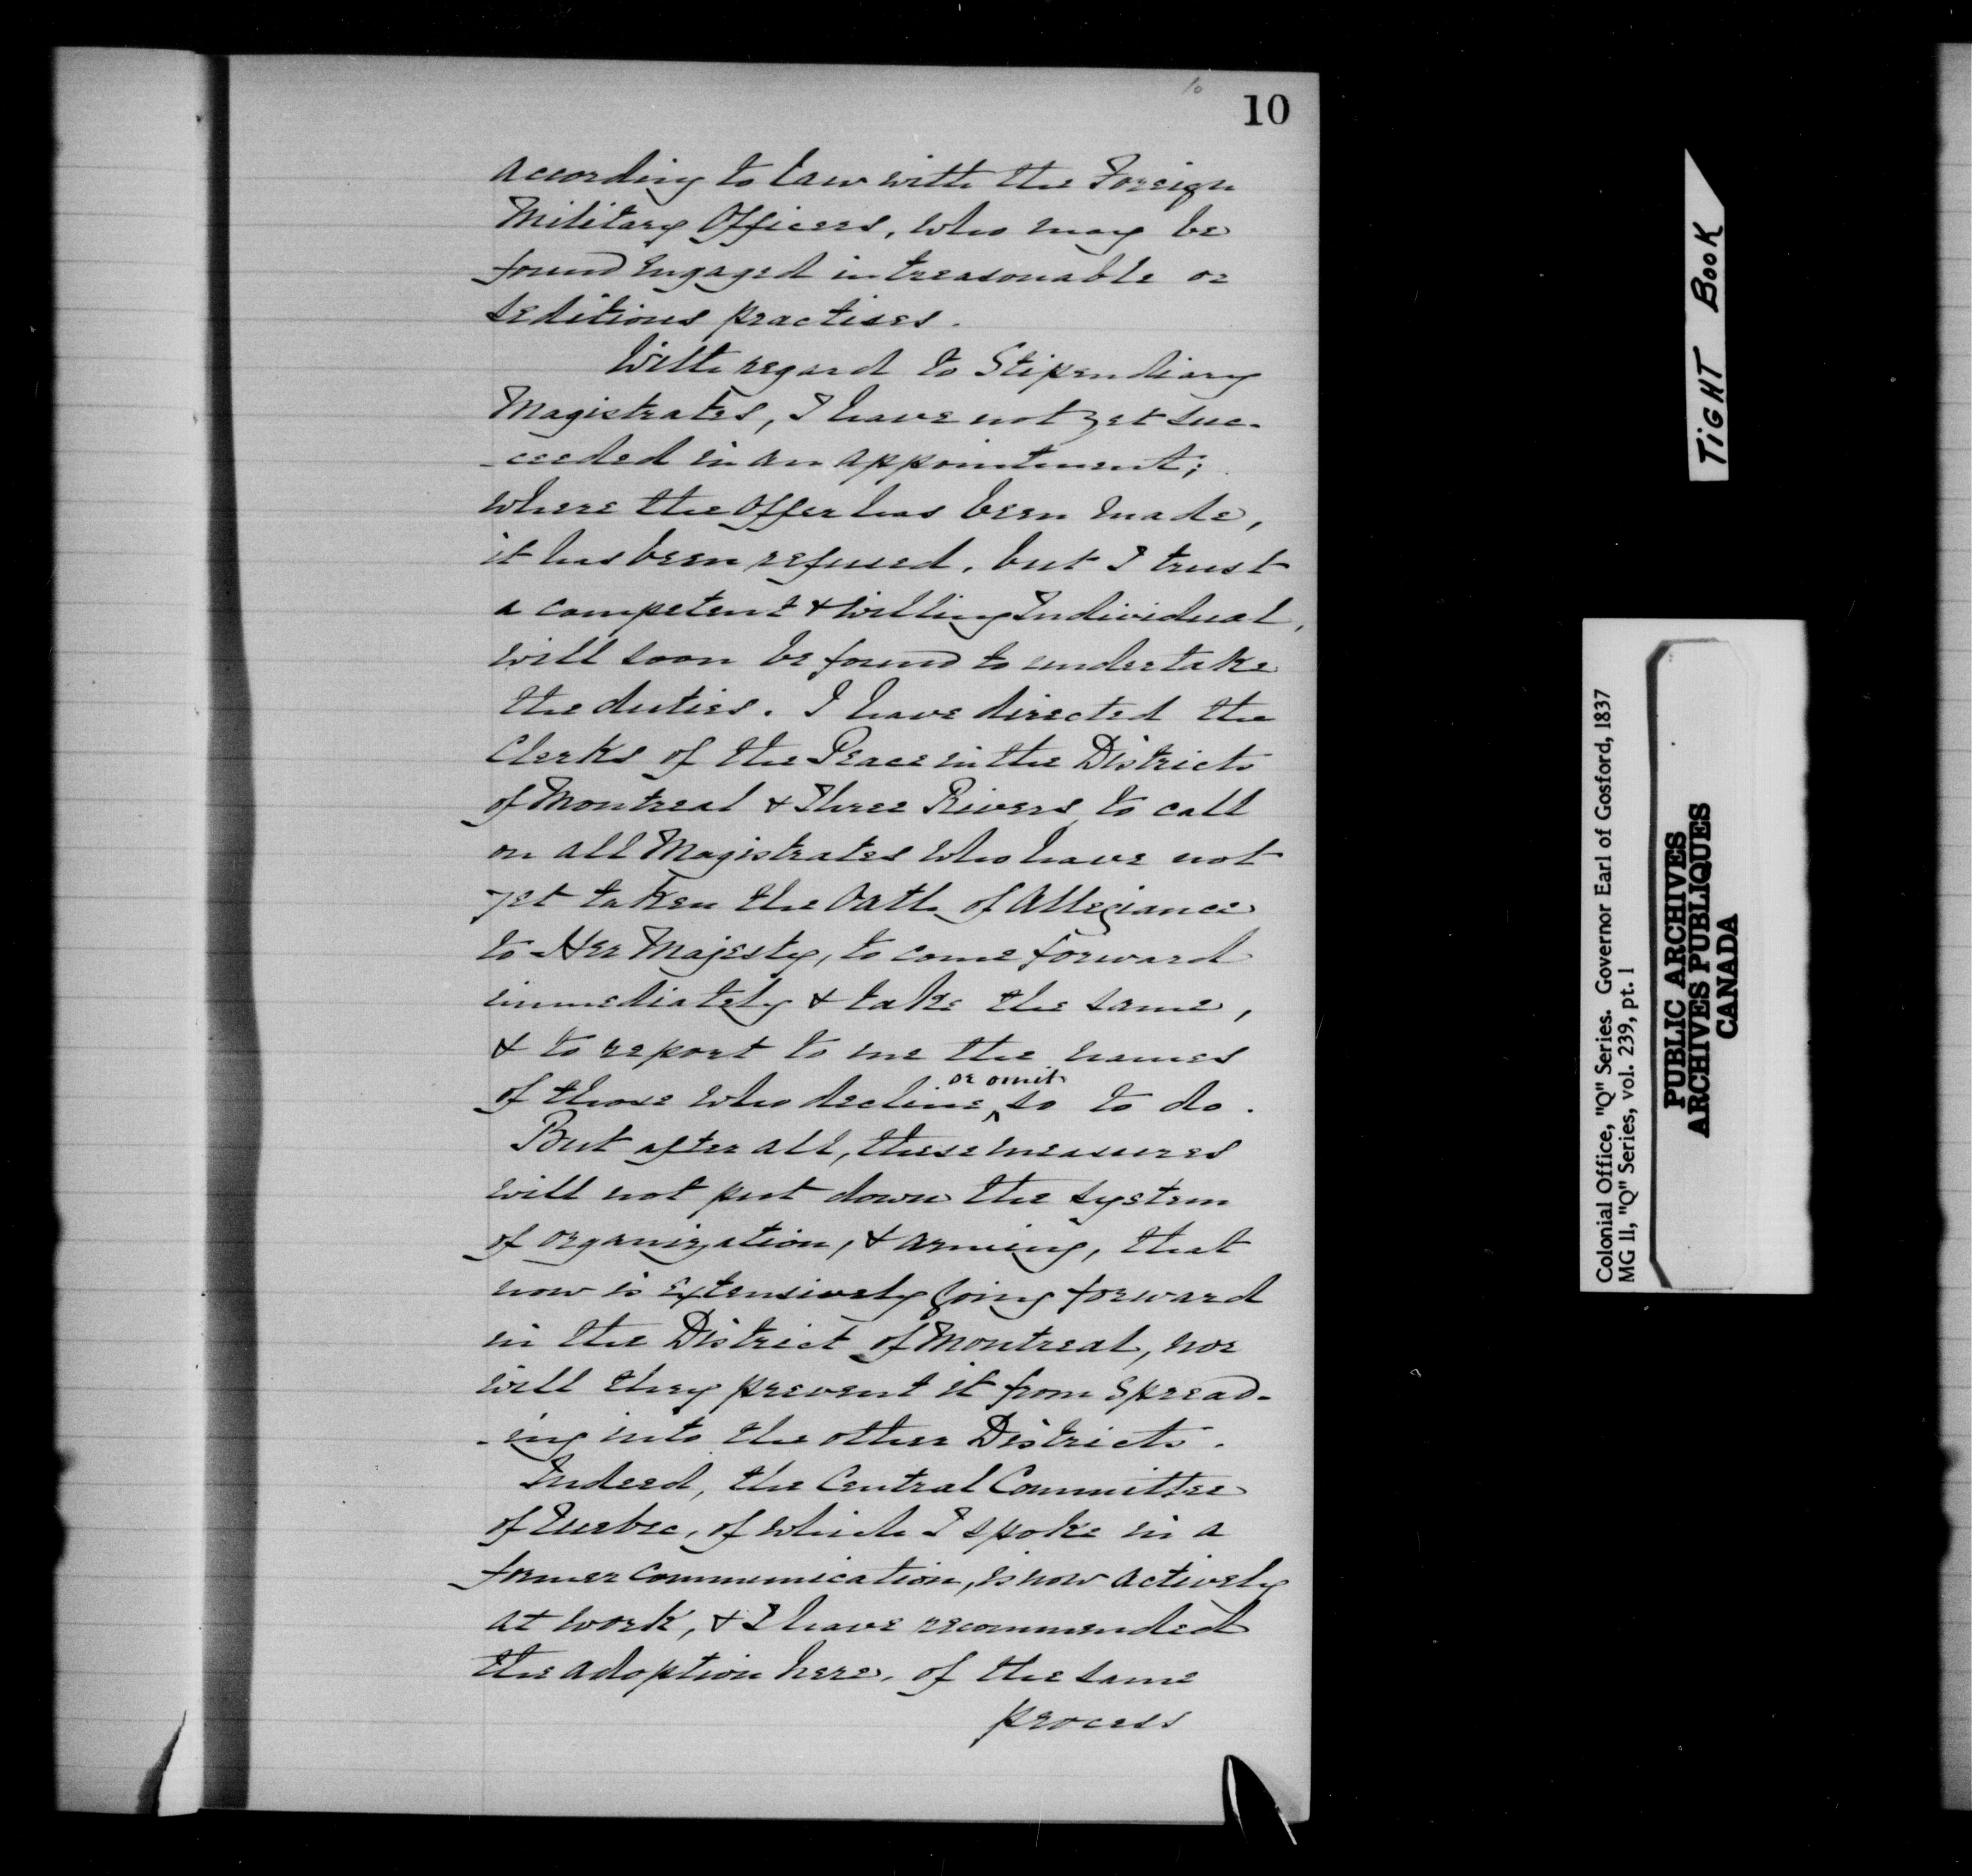 10
10
according to Law with the Foreign
Military Officers, who may be
found engaged in treasonable or
seditious practises.
With regard to Stipendiary
Magistrates, I have not yet suc-
-ceeded in an appointment;
where the offer has been made,
it has been refused, but I trust
a competent & willing Individual,
will soon be found to undertake
the duties. I have directed the
Clerks of the Peace in the Districts
of Montreal & Three Rivers, to call
on all Magistrates who have not
yet taken the Oath of Allegiance
to Her Majesty, to come forward
immediately & take the same,
& to report to me the names
or omit
of those who decline ^ so to do.
But after all, these measures
will not put down the system
of organization, & arming, that
now is extensively going forward
in the District of Montreal, nor
will they prevent it from spread-
-ing into the other Districts.
Indeed, the Central Committee
of Quebec, of which I spoke in a
former communication, is now actively
at work, & I have recommended
the adoption here, of the same
process
TIGHT BOOK
Colonial Office, "Q" Series. Governor Earl of Gosford, 1837
MG 11, "Q" Series, vol. 239, pt. 1
PUBLIC ARCHIVES
ARCHIVES PUBLIQUES
CANADA